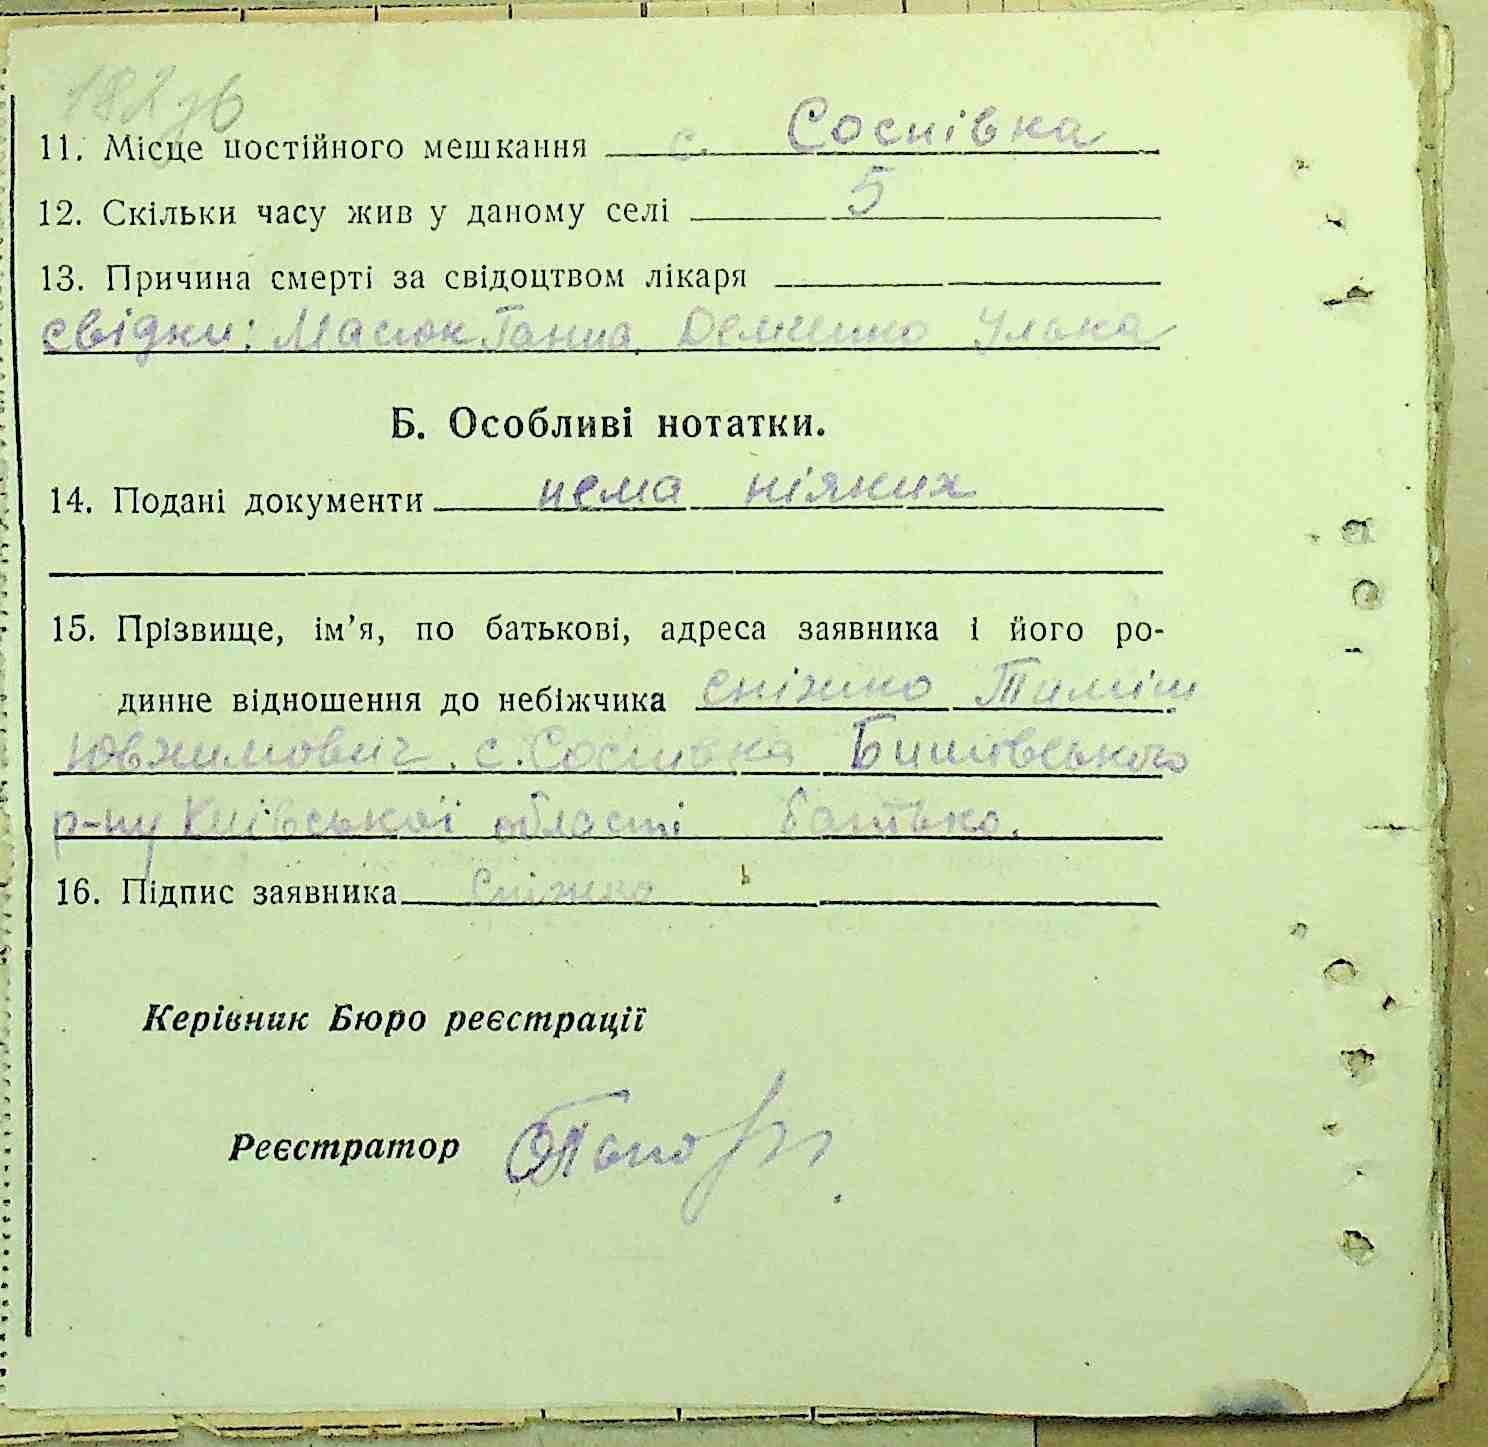 182зв
11. Місце постійного мешкання с. Соснівка
12. Скільки часу жив у даному селі 5
13. Причина смерті за свідоцтвом лікаря
свідки: Масюк Ганна, Демченко Улька
Б. Особливі нотатки.
14. Подані документи нема ніяких
15. Прізвище, ім’я, по батькові, адреса заявника і його ро-
динне відношення до небіжчика Сніжко Тиміш
Ювхимович. с. Соснівка Бишівського
р-ну Київської області батько.
16. Підпис заявника Сніжко
Керівник Бюро реєстрації
Реєстратор